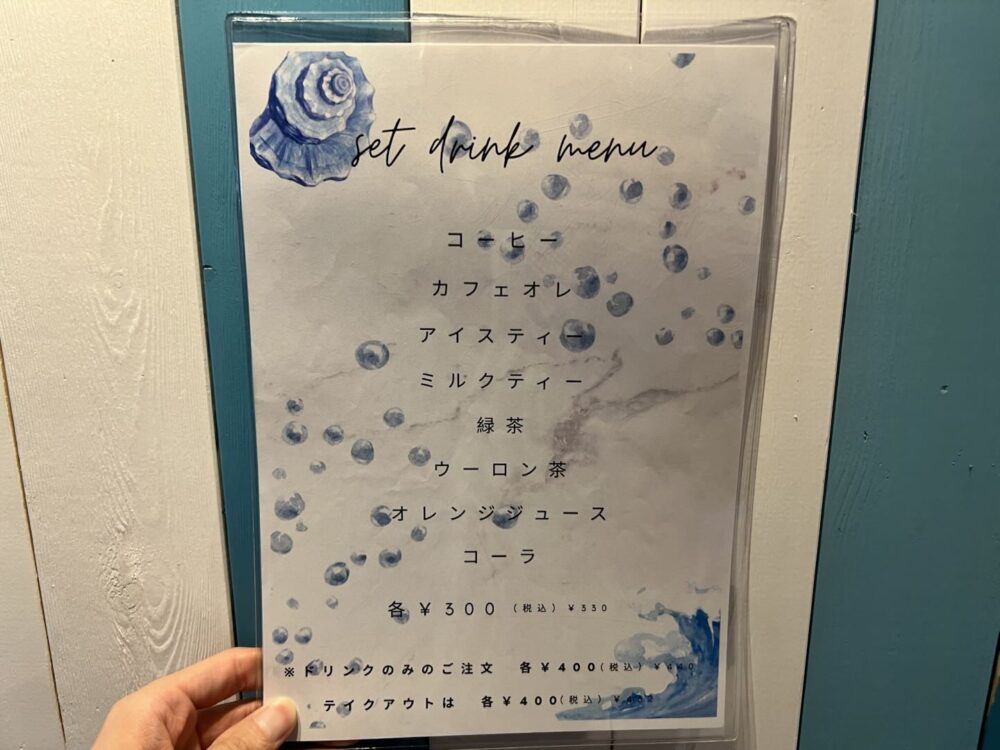 set drink menu
コーヒー
カフェオレ
アイスティー
ミルクティー
緑茶
ウーロン茶
オレンジジュース
コーラ
各￥300（税込）￥330
※ドリンクのみのご注文　各￥400（税込）￥440
テイクアウトは　各￥400（税込）￥432